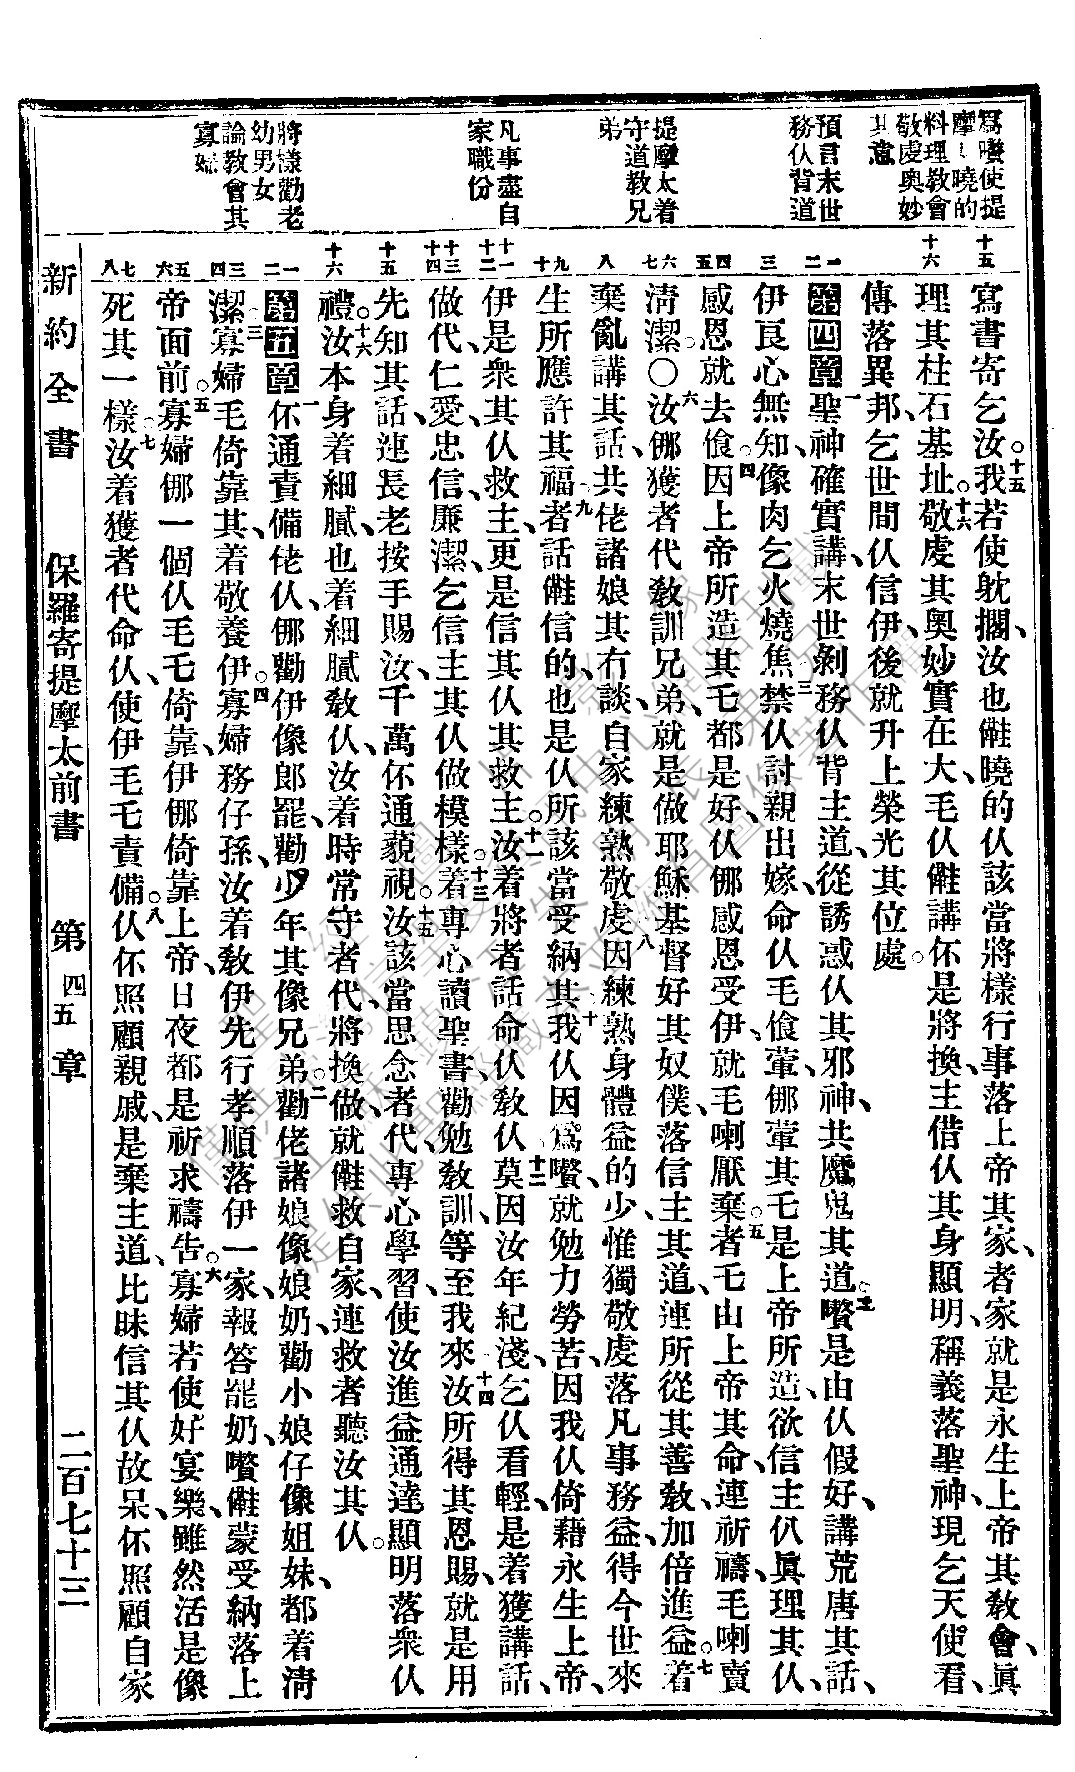 寫嚽使提
摩太曉的
料理教會
敬虔奧妙
其意
預言末世
務仈背道
提摩太着
守道教兄
弟
凡事盡自
家職份
將樣勸老
幼男女
論教會其
寡婦
十五
十六
一二
三
四五
六七
八
九十
十一十二
十三十四
十五
十六
一二
三四
五六
七八
寫書寄乞汝。十五我若使躭擱、汝也𠆧曉的仈該當將樣行事落上帝其家、者家就是永生上帝其教會、眞
理其柱石基址。十六敬虔其奧妙實在大、毛仈𠆧講伓是將換、主借仈其身顯明、稱義落聖神、現乞天使看、
傳落異邦、乞世間仈信伊、後就升上榮光其位處。
第四章一聖神確實講、末世剝務仈背主道、從誘惑仈其邪神、共魔鬼其道。二嚽是由仈假好、講荒唐其話、
伊良心無知、像肉乞火燒焦。三禁仈討親出嫁、命仈毛飡葷、㑚葷其乇是上帝所造、欲信主仈眞理其仈、
感恩就去飡。四因上帝所造其乇都是好、仈㑚感恩受伊、就毛喇厭棄。五者乇由上帝其命、連祈禱、毛喇賣
淸潔〇六汝㑚獲者代教訓兄弟、就是做耶穌基督好其奴僕、落信主其道、連所從其善教、加倍進益。七着
棄亂講其話、共佬諸娘其冇談、自家練熟敬虔。八因練熟身體益的少、惟獨敬虔、落凡事務益、得今世來
生所應許其福。九者話𠆧信的、也是仈所該當受納其。十我仈因爲嚽、就勉力勞苦、因我仈倚藉永生上帝、
伊是衆其仈救主、更是信其仈其救主。十一汝着將者話命仈教仈。十二莫因汝年紀淺、乞仈看輕、是着獲講話、
做代、仁愛、忠信、廉潔、乞信主其仈做模樣。十三着專心讀聖書、勸勉教訓、等至我來。十四汝所得其恩賜、就是用
先知其話、連長老按手賜汝、千萬伓通藐視。十五汝該當思念者代、專心學習、使汝進益通達、顯明落衆仈
禮。十六汝本身着細膩、也着細膩教仈、汝着時常守者代、將換做就𠆧救自家、連救者聽汝其仈。
第五章一伓通責備佬仈、㑚勸伊像郎罷、勸少年其像兄弟。二勸佬諸娘像娘奶、勸小娘仔像姐妹、都着淸
潔。三寡婦毛倚靠其、着敬養伊。四寡婦務仔孫、汝着教伊先行孝順落伊一家、報答罷奶、嚽𠆧蒙受納落上
帝面前。五寡婦㑚一個仈毛乇倚靠、伊㑚倚靠上帝、日夜都是祈求禱告。六寡婦若使好宴樂、雖然活是像
死其一樣。七汝着獲者代命仈、使伊毛乇責備。八仈伓照顧親戚、是棄主道、比昧信其仈故呆、伓照顧自家
新約全書　保羅寄提摩太前書　第四五章　二百七十三